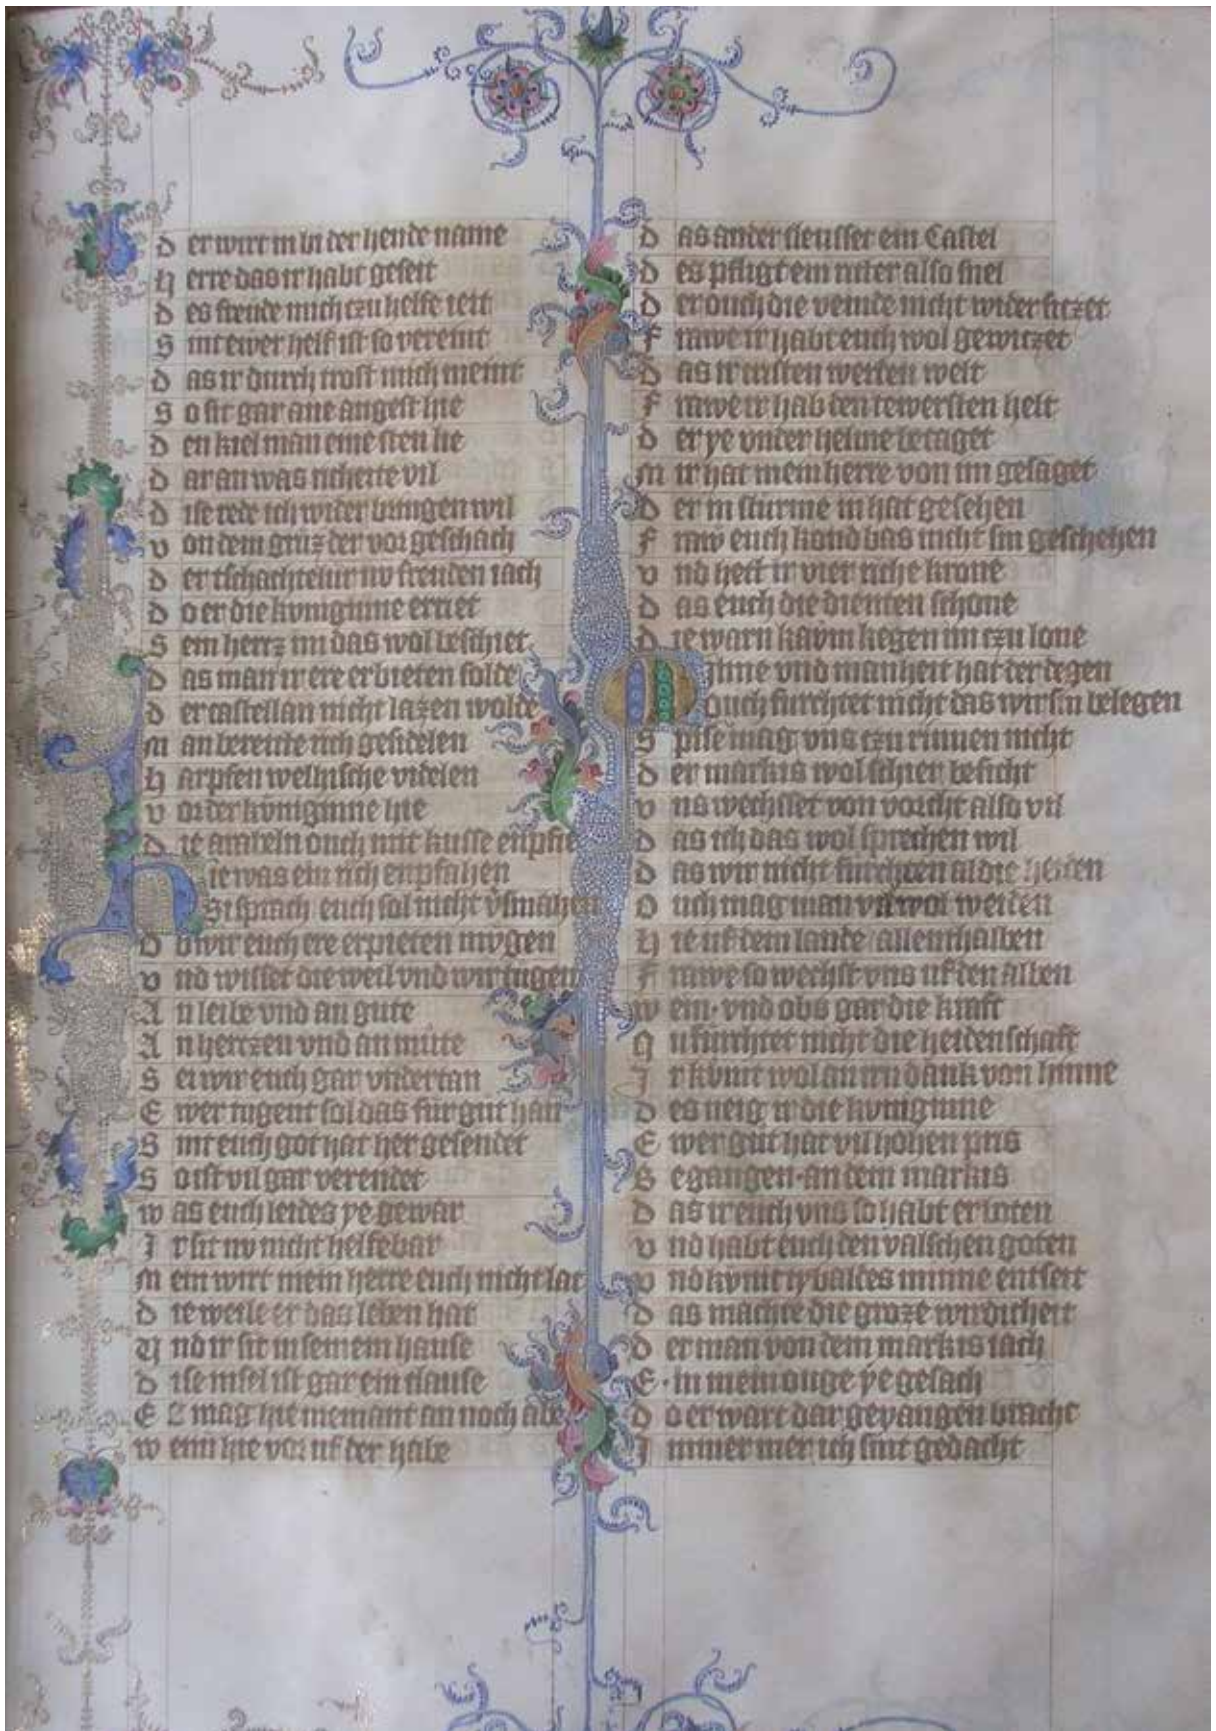 D er wirt in in der hende name
H erre das ir habt geseit
D es freude mich czu helfe reit
S int ewer helf ist so vereint
D as ir durch trost mich meint
S o sit gar ane angest hie
D en kiel man eine sten lie
D ar an was richeite vil
D ise rede ich wider bringen wil
V on dem gruz der vor geschach
D er tschachtelur nv freuden iach
D o er die kvniginne erriet
S ein hertz im das wol beschiet
D as man ir ere erbieten solde
D er castellan nicht lazen wolde
M an bereitte rich gesidelen
H arpfen welhische videlen
V or der kvniginne hie
D ie amieln ouch mit kusse enpfie
H ie was ein rich enpfahen
Si sprach euch sol nicht v̓smahen
O b wir euch ere erpieten mvgen
V nd wisset die weil vnd wir tugen
A n leibe vnd an gute
A n hertzen vnd an mute
S ei wir euch gar vndertan
E wer tugent sol das fur gut han
S int euch got hat her gesendet
S o ist vil gar verendet
W as euch leides ye gewar
I r sit nv nicht helfebar
M ein wirt mein herre euch nicht lat
D ie weile er das leben hat
V nd ir sit in seinem hause
D ise insel ist gar ein clause
E z mag hie niemant an noch abe
W enn hie vor uf der habe
D as ander sleusset ein Castel
D es pfligt ein ritter also snel
D er ouch die veinde nicht wider sitzet
F rawe ir habt euch wol gewitzet
D as ir cristen werden welt
F rawe ir hab den tewersten helt
D er ye vnder helme betaget
M ir hat mein herre von im gesaget
D er in sturme in hat gesehen
F raw euch kond bas nicht sin geschehen
V nd hett ir vier riche krone
D as euch die dienten schone
D ie warn kavm kegen im czu lone
M inne vnd manheit hat der degen
Ouch furchtet nicht das wir sin belegen
S pise mag vns czu rinnen nicht
D er markis wol schier besicht
V ns wechsset von vorcht also vil
D as ich das wol sprechen wil
D as wir nicht furchten al die heiden
O uch mag man wol weiden
H ie uf dem lande allenthalben
F rawe so wechst vns uf den alben
W ein vnd obs gar die kraft
N u furchtet nicht die heidenschaft
I r kvmt wol an iren dank von hinne
D es neig ir die kvniginne
E wer gut hat vil hohen pris
B egangen an dem markis
D as ir euch vns so habt erboten
V nd habt euch den valschen goten
V nd kvnic tybaldes minne entseit
D as machte die groze wirdicheit
D er man von dem markis iach
E in mein ouge ye gesach
D o er wart dar gevangen bracht
I mmer mer ich sint gedacht